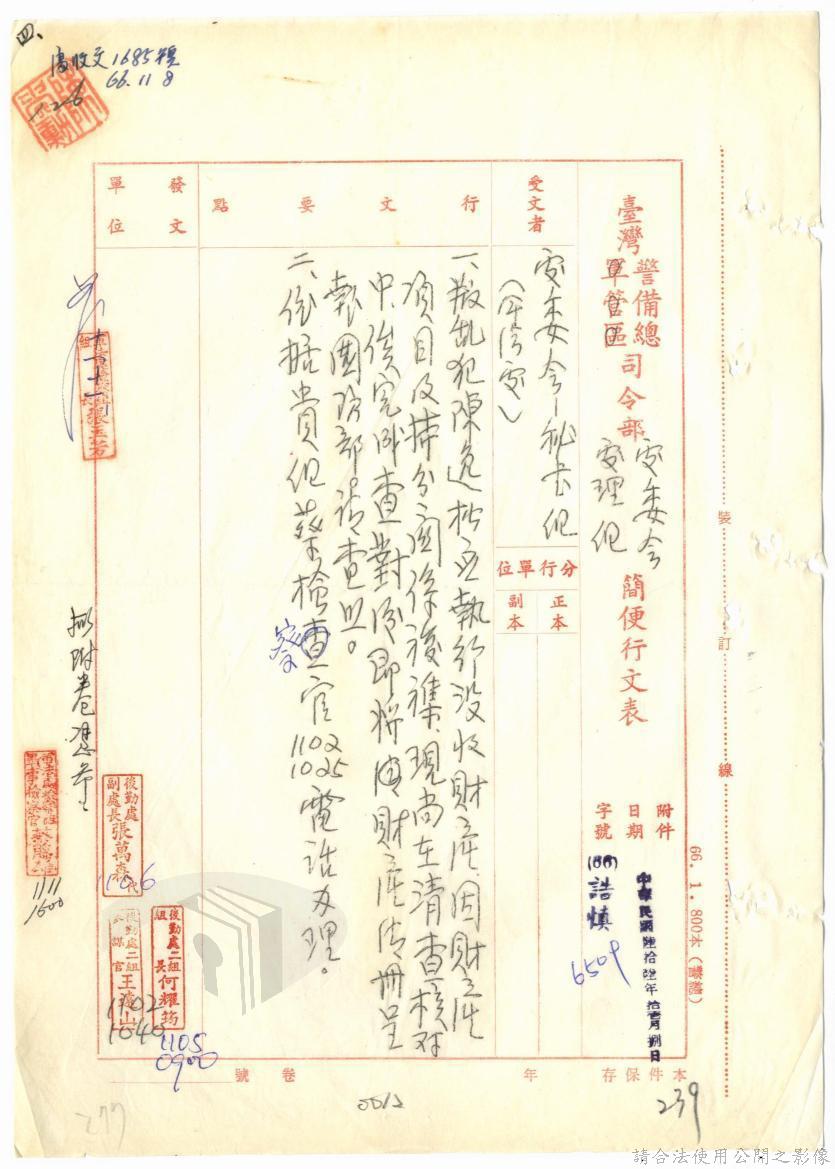 四、
收文1685號
66.11.8
126
臺灣警備總司令部
軍管區
處委會
處理組
簡便行文表
受文者
行文要點
發文單位
處委會—秘书组
(軍法處)
分行單位
正本
副本
附件
日期
字號
中華民國陸拾陸年拾壹月捌日
(66)誥慎
6509
一、叛乱犯陳逸松乙執行没收財產,因財產
項目及持分関係複雜,現尚在清查核对
中,俟完畢查對後即將該財產清冊呈
報國防部請查照。
二、依據貴组蔡檢察官1102
1025電話办理。
拟附卷
後勤處
副處長張萬森代
1106
後勤處二組
組長何耀筠
1105
0900
後勤處二組
參謀官王遠山
1102
1040
1111
1600
裝訂線
66.1.800本
本件保存年
卷號
239
0012
277
請合法使用公開之影像